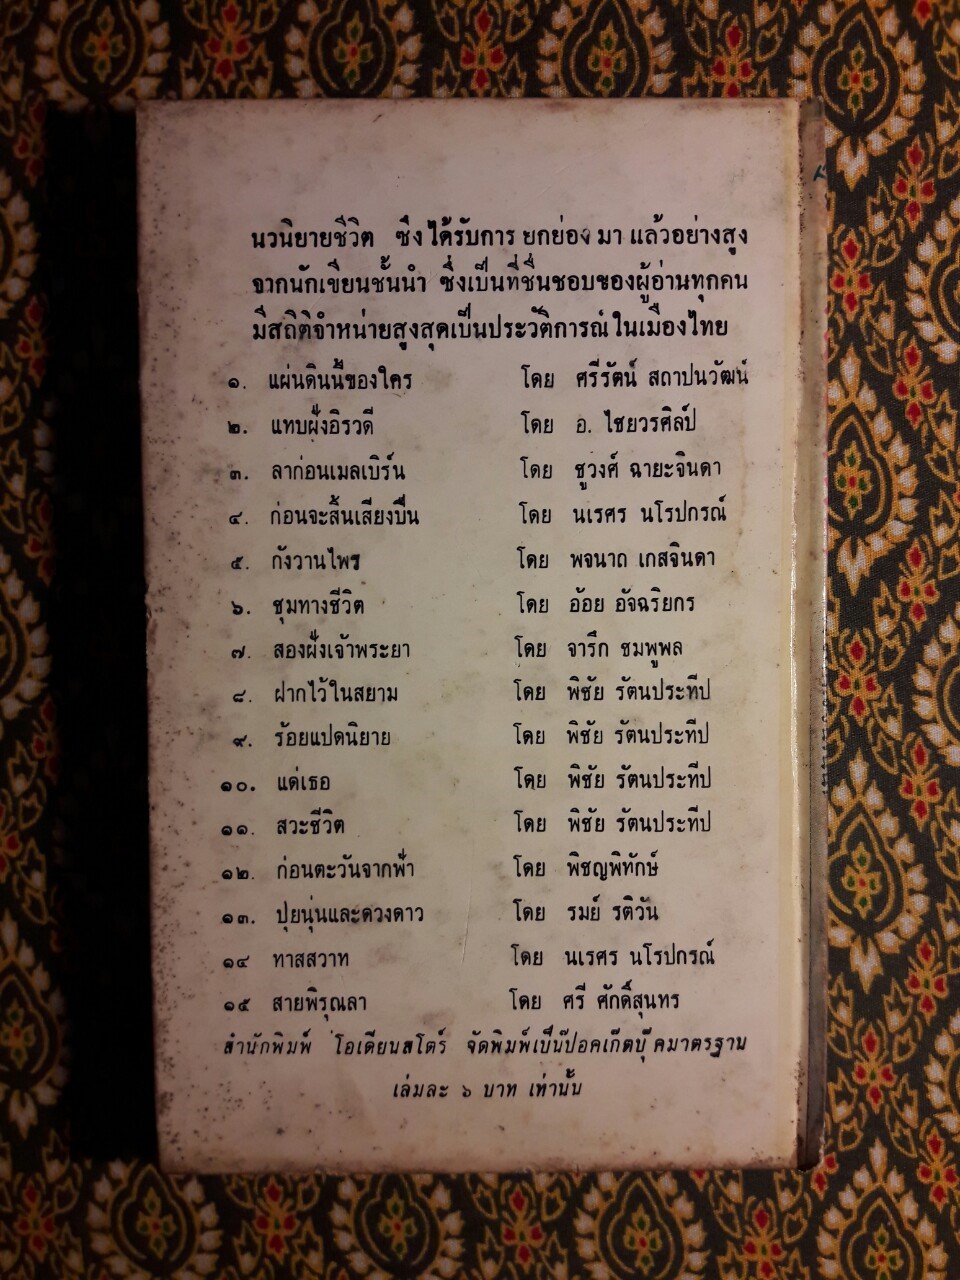 นวนิยายชีวิต ซึ่งได้รับการ ยกย่อง มา แล้วอย่างสูง
จากนักเขียนชั้นนำ ซึ่งเป็นที่ชื่นชอบของผู้อ่านทุกคน
มีสถิติจำหน่ายสูงสุดเป็นประวัติการณ์ในเมืองไทย
๑. แผ่นดินนี้ของใคร โดย ศรีรัตน์ สถาปนวัฒน์
๒. แทบฝั่งอิรวดี โดย อ. ไชยวรศิลป์
๓. ลาก่อนเมลเบิร์น โดย ชูวงศ์ ฉายะจินดา
๔. ก่อนจะสิ้นเสียงปืน โดย นเรศร นโรปกรณ์
๕. กังวานไพร โดย พจนาถ เกสจินดา
๖. ชุมทางชีวิต โดย อ้อย อัจฉริยกร
๗. สองฝั่งเจ้าพระยา โดย จารึก ชมพูพล
๘. ฝากไว้ในสยาม โดย พิชัย รัตนประทีป
๙. ร้อยแปดนิยาย โดย พิชัย รัตนประทีป
๑๐. แด่เธอ โดย พิชัย รัตนประทีป
๑๑. สวะชีวิต โดย พิชัย รัตนประทีป
๑๒. ก่อนตะวันจากฟ้า โดย พิชญพิทักษ์
๑๓. ปุยนุ่นและดวงดาว โดย รมย์ รติวัน
๑๔ ทาสสวาท โดย นเรศร นโรปกรณ์
๑๕ สายพิรุณลา โดย ศรี ศักดิ์สุนทร
สำนักพิมพ์ โอเดียนสโตร์ จัดพิมพ์เป็นป๊อคเก๊ตบุ๊คมาตรฐาน
เล่มละ ๖ บาท เท่านั้น